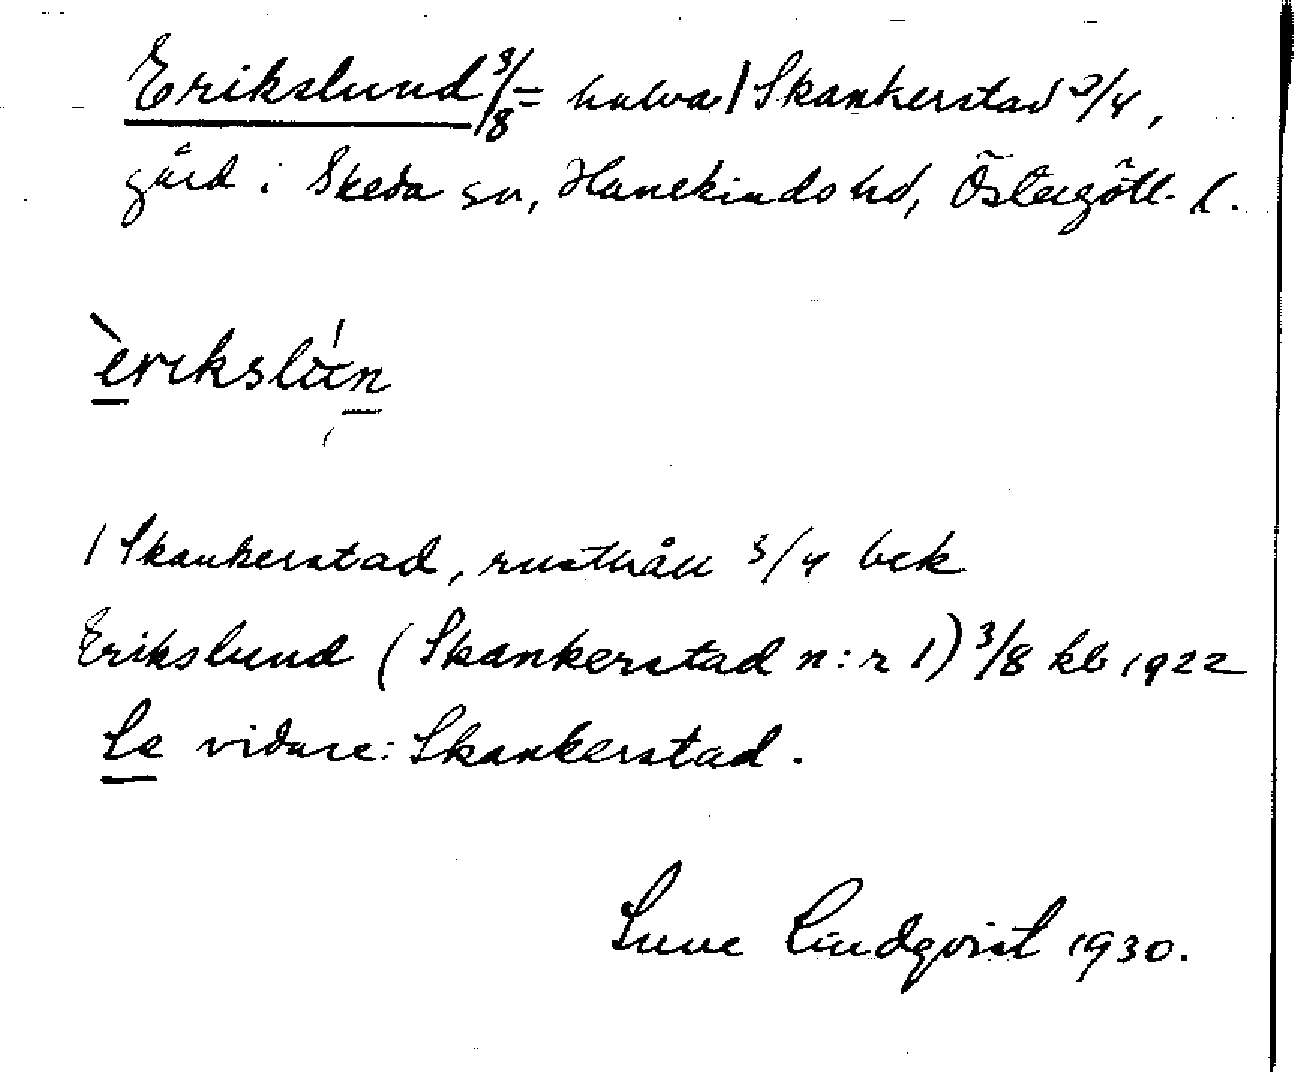 Erikslund 3/8 = halva 1 Skankerstad 3/4,
gård i Skeda sn, Hanekinds hd, Östergötl. l.
èrikslún
1 Skankerstad, rusthåll 3/4 bek
Erikslund (Skankerstad n:r 1) 3/8 kb 1922
Se vidare: Skankerstad.
Sune Lindqvist 1930.